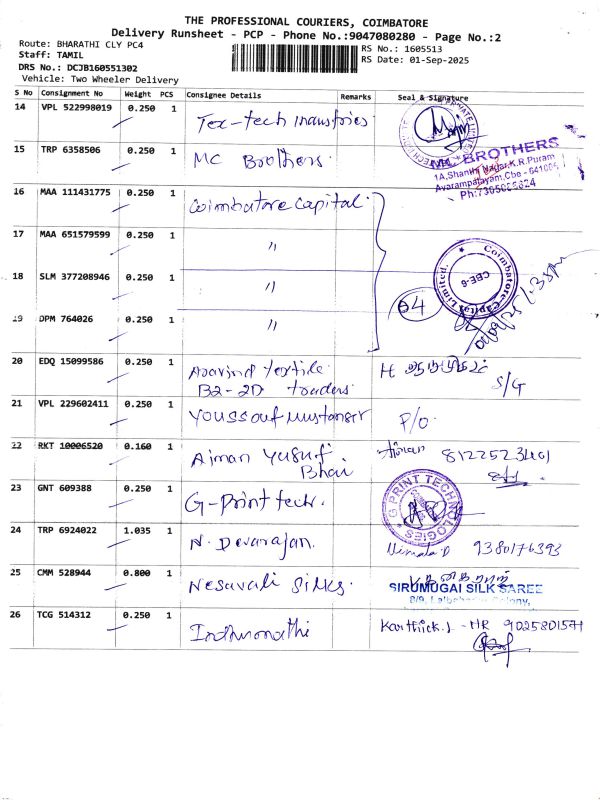 THE PROFESSIONAL COURIERS, COIMBATORE
Delivery Runsheet - PCP - Phone No.:9047080280 - Page No.:2
Route: BHARATHI CLY PC4 RS No.: 1605513
Staff: TAMIL RS Date: 01-Sep-2025
DRS No.: DCJB160551302
Vehicle: Two Wheeler Delivery
S No Consignment No Weight PCS Consignee Details Remarks Seal & Signature
14 VPL 522998019 0.250 1 Tex-tech Industries
15 TRP 6358506 0.250 1 MC Brothers.
BROTHERS
1A,Shanthi Nagar,K.R.Puram
Avarampalayam,Cbe - 641006
16 MAA 111431775 0.250 1 Coimbatore Capital.
17 MAA 651579599 0.250 1 "
Coimbatore Capital Limited.
CBE-6
18 SLM 377208946 0.250 1 "
04
19 DPM 764026 0.250 1 "
20 EDQ 15099586 0.250 1 Aravind Textile H
B2-2D traders S/G
21 VPL 229602411 0.250 1 Youssouf Mustansir P/O.
22 RKT 10006520 0.160 1 Aiman Yusuf. Aiman 8122523401
Bhai
23 GNT 609388 0.250 1 G-Print tech.
G PRINT TECHNOLOGIES
24 TRP 6924022 1.035 1 N. Devarajan. Nirmala D 9380176393
25 CMM 528944 0.800 1 Nesavali Silks.
SIRUMUGAI SILK SAREE
26 TCG 514312 0.250 1 Indhumathi Karthick.J - HR 9025801571